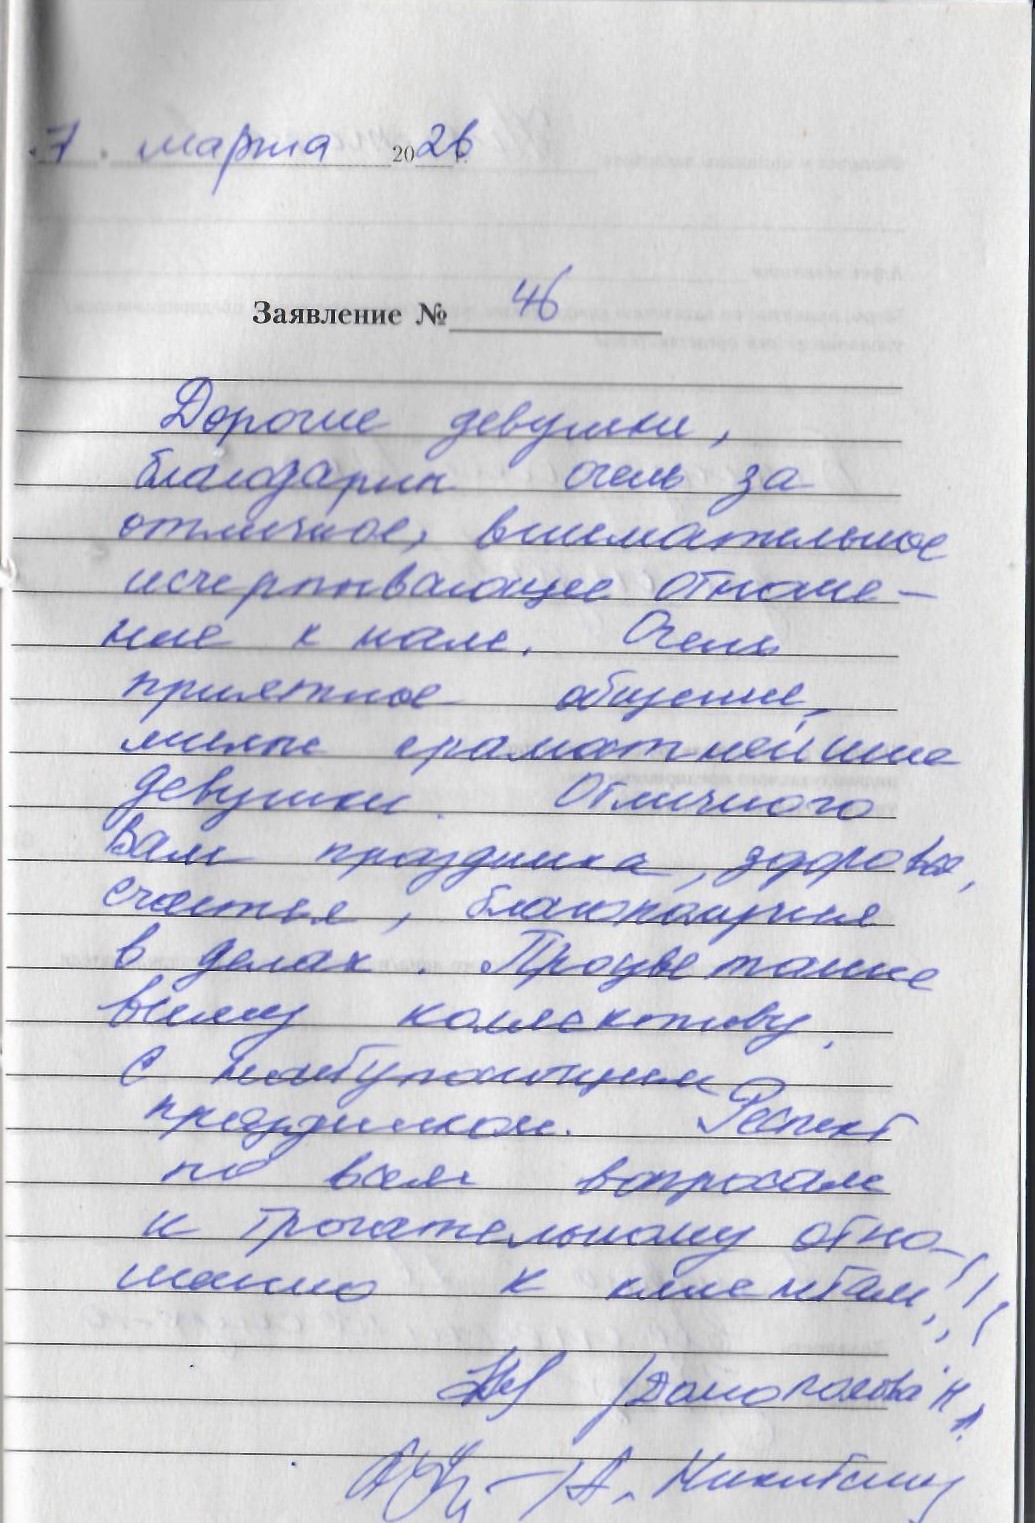 7. марта 2026
Заявление № 46
Дорогие девушки,
благодарим очень за
отличное, внимательное
исчерпывающее отноше-
ние к нам. Очень
приятное общение,
милые грамотнейшие
девушки. Отличного
Вам праздника, здоровья,
счастья, благополучия
в делах. Процветание
всему коллективу,
с наступающим
праздником. Респект
по всем вопросам
и трогательному отно-
шению к клиентам!!!
А. Никитин